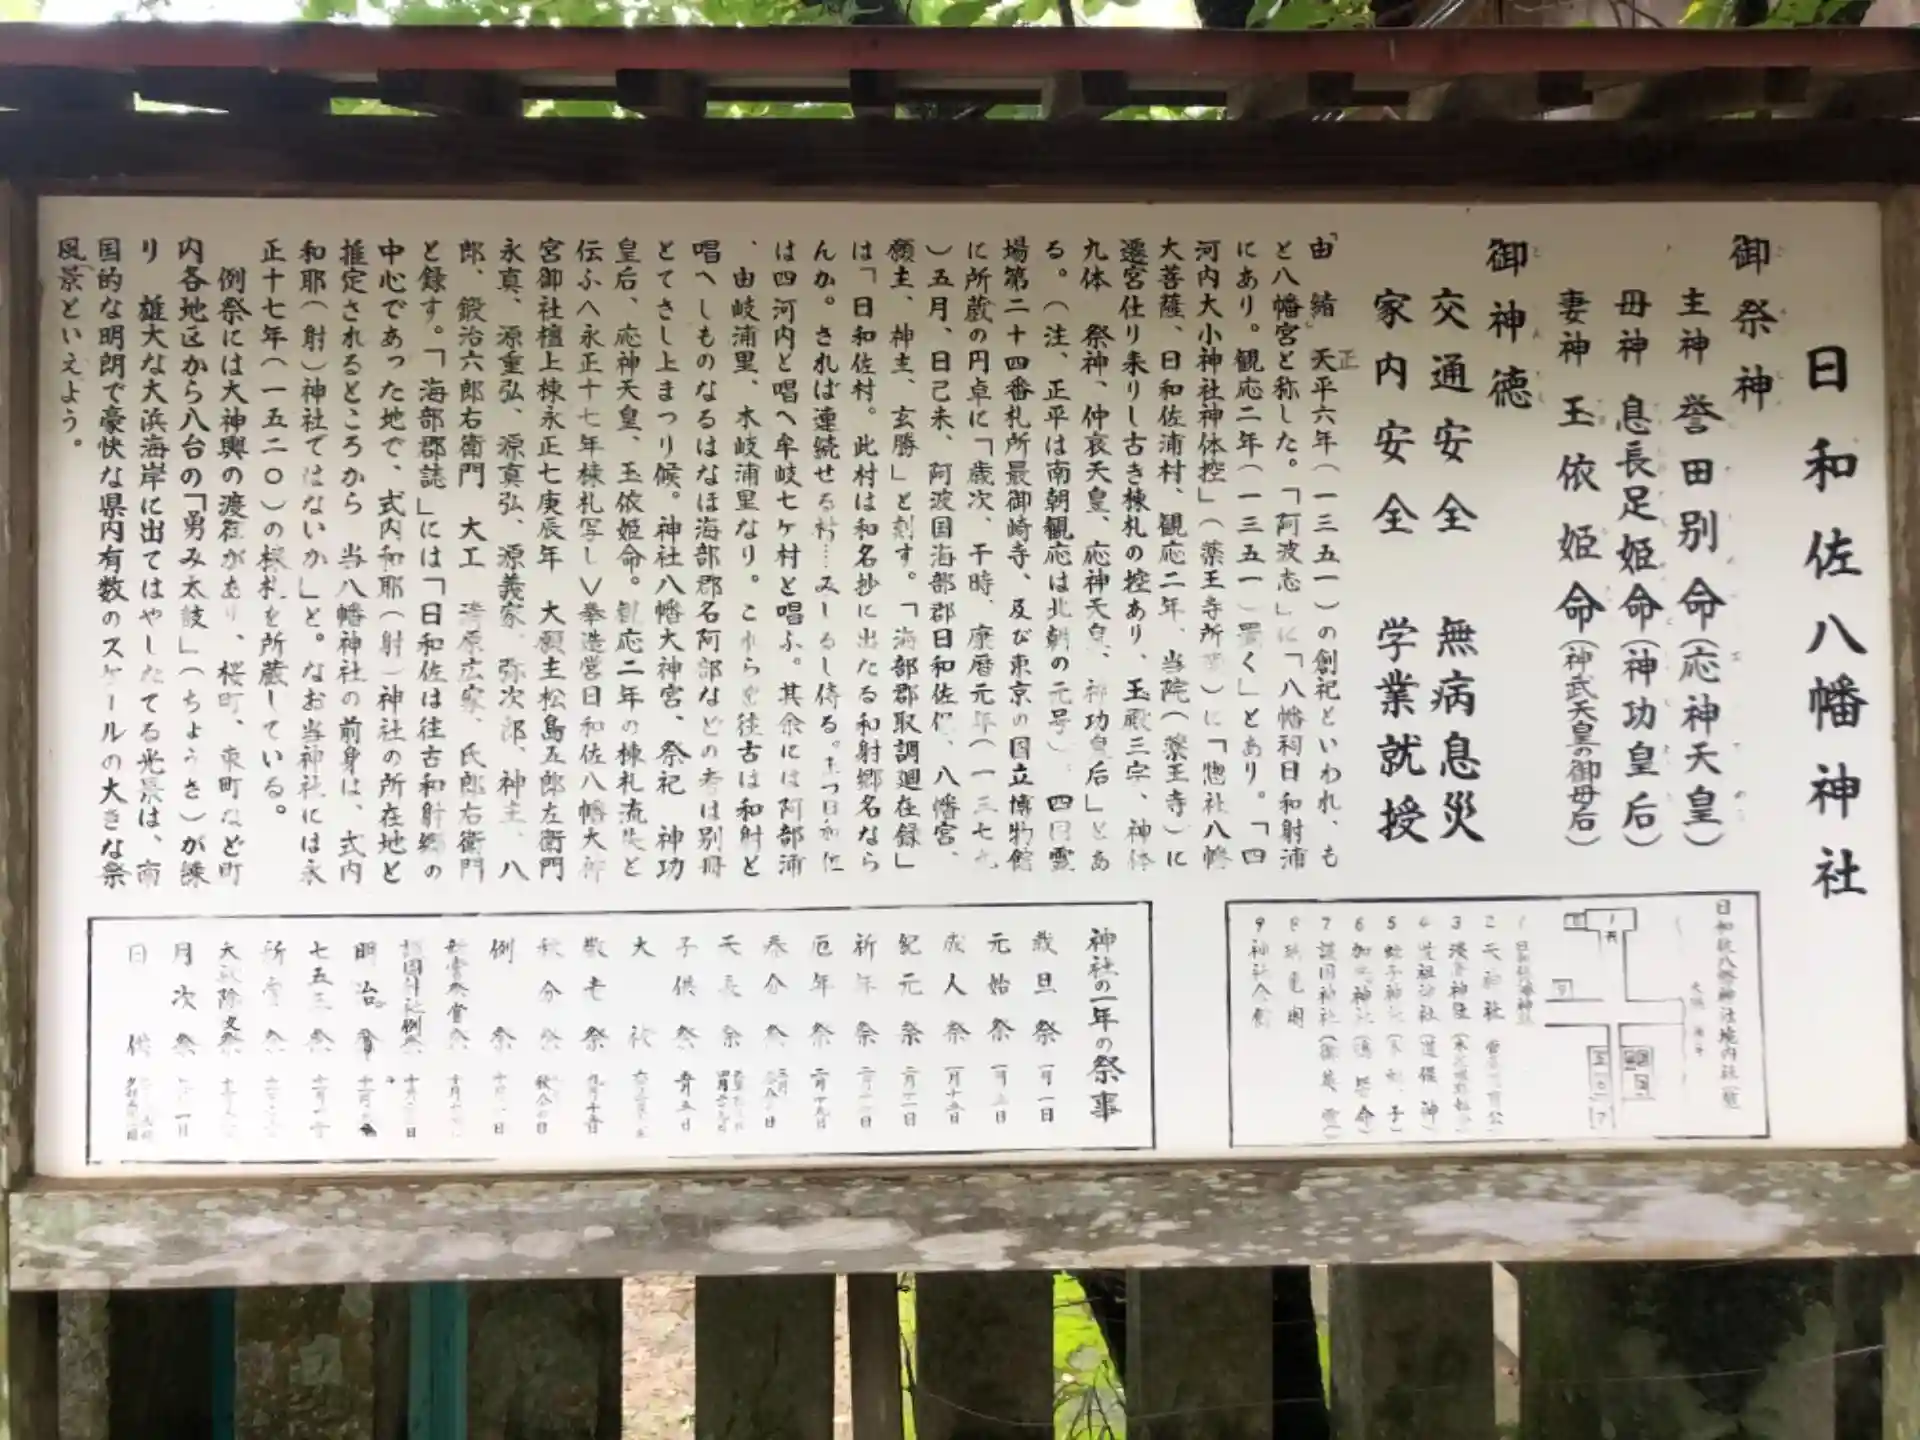 日和佐八幡神社
御祭神
主神 誉田別命(応神天皇)
母神 息長足姫命(神功皇后)
妻神 玉依姫命(神武天皇の御母后)
御神徳
交通安全 無病息災
家内安全 学業就授
由緒 天平六年(一三五一)の創祀といわれ、も
正
と八幡宮と称した。「阿波志」に「八幡祠日和射浦
にあり。観応二年(一三五一)置く」とあり。「四
河内大小神社神体控」(薬王寺所蔵)に「惣社八幡
大菩薩、日和佐浦村、観応二年、当院(薬王寺)に
遷宮仕り来りし古き棟札の控あり、玉殿三字、神体
九体 祭神、仲哀天皇、応神天皇、神功皇后」とあ
る。(注、正平は南朝観応は北朝の元号) 四国霊
場第二十四番札所最御崎寺、及び東京の国立博物館
に所蔵の円卓に「歳次、干時、康暦元年(一三七九
)五月、日己未、阿波国海部郡日和佐 、八幡宮、
願主、神主、玄勝」と刻す。「海部郡取調廻在録」
は「日和佐村。此村は和名抄に出たる和射郷名なら
んか。されば連続せる村…みしるし侍る。 日和佐
は四河内と唱へ牟岐七ケ村と唱ふ。其余には阿部浦
、由岐浦里、木岐浦里なり。これらを往古は和射と
唱へしものなるはなほ海部郡名阿部などの考は別冊
とてさし上まつり候。神社八幡大神宮、祭祀 神功
皇后、応神天皇、玉依姫命。観応二年の棟札流失と
伝ふへ永正十七年棟札写し∨挙造営日和佐八幡大
宮御社檀上棟永正七庚辰年 大願主松島五郎左衛門
永真、源重弘、源真弘、源義家、弥次郎、神主、八
郎、鍛治六郎右衛門 大工 清原広家、氏郎右衛門
と録す。「海部郡誌」には「日和佐は往古和射郷の
中心であった地で、式内和耶(射)神社の所在地と
推定されるところから 当八幡神社の前身は、式内
和耶(射)神社ではないか」と。なお当神社には永
正十七年(一五二〇)の棟札を所蔵している。
例祭には大神輿の渡御があり、桜町、東町など町
内各地区から八台の「勇み太鼓」(ちょうさ)が練
り 雄大な大浜海岸に出てはやしたてる光景は、南
国的な明朗で豪快な県内有数のスケールの大きな祭
風景といえよう。
日和佐八幡神社境内社
1 日和佐八幡神社
2 天神社
3
4 祖神社(道祖神)
5 蛭子神社
6 神社
7 護国神社
8
9 神社会館
神社の一年の祭事
歳旦祭 一月一日
元始祭 一月三日
成人祭 一月十五日
紀元祭 二月十一日
祈年祭
厄年祭 二月十九日
春分祭
天長祭
子供祭 五月五日
大祓
敬老祭 九月十五日
秋分祭
例祭
護国神社例祭
明治祭
七五三祭
大祓除夜祭
月次祭 一日
日供